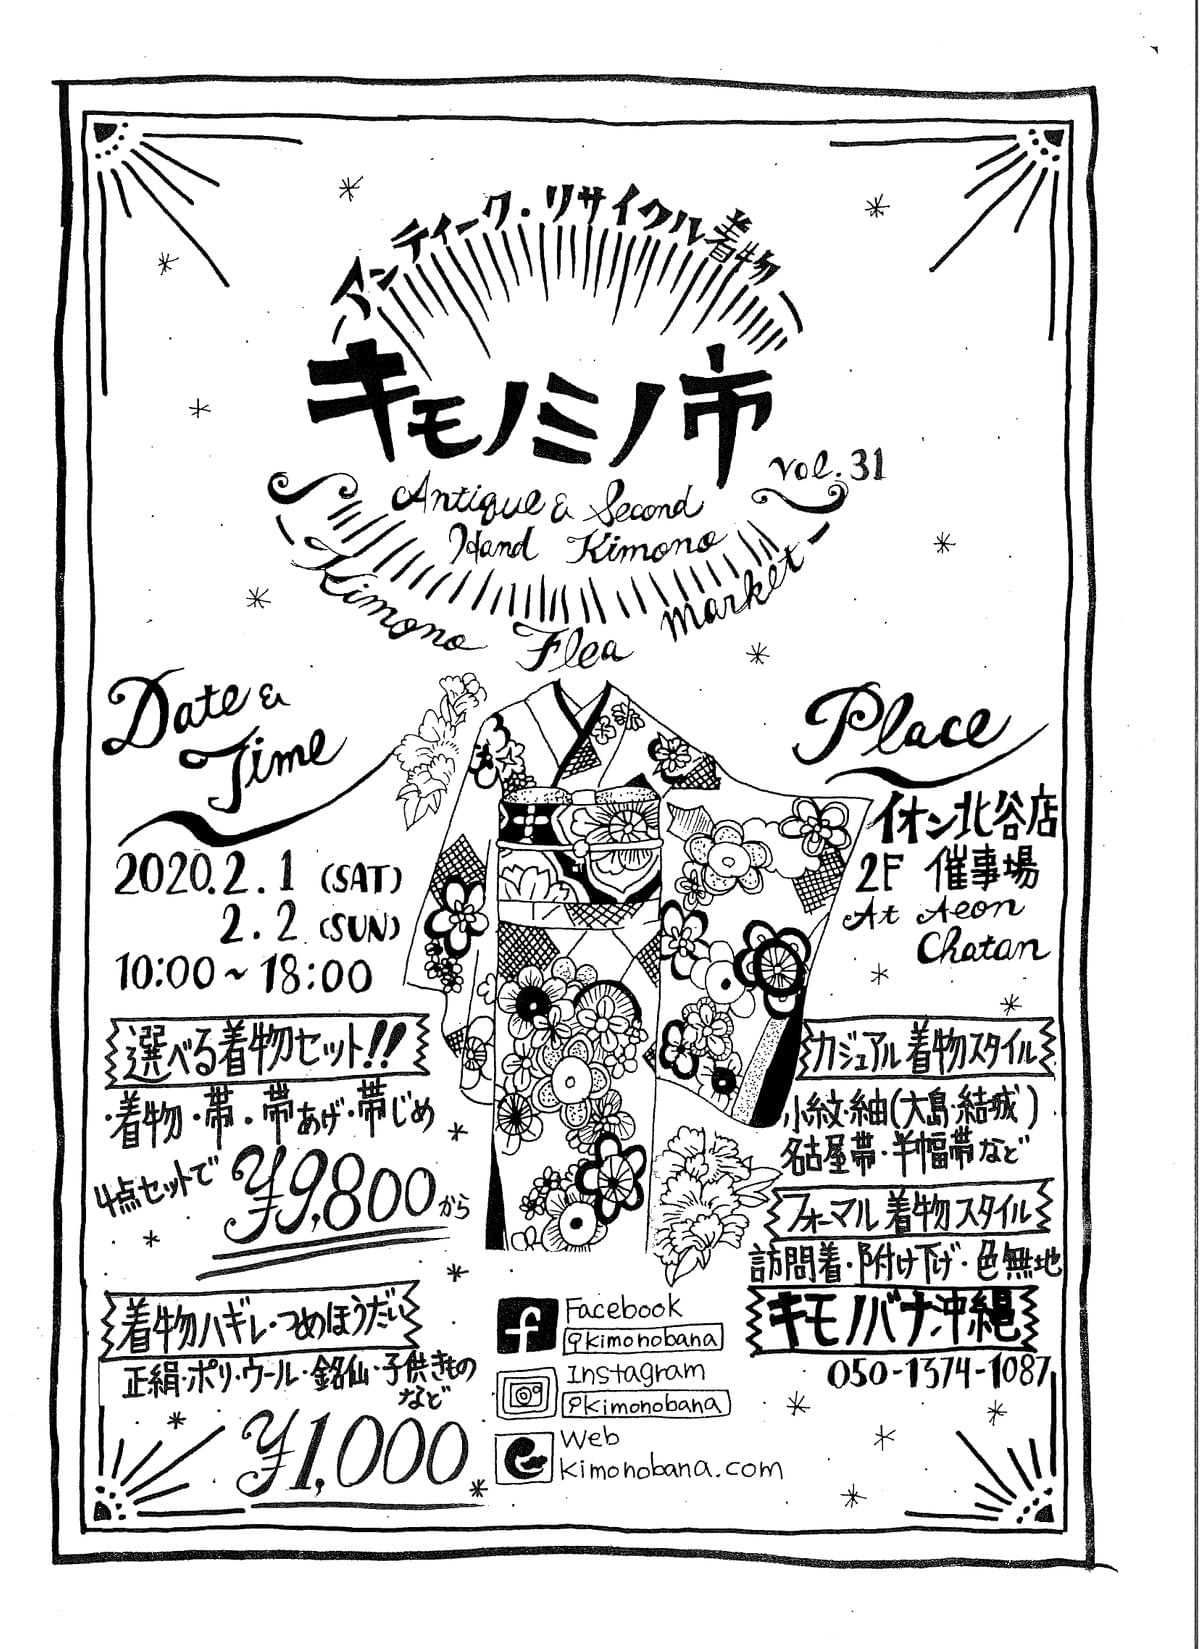 アンティーク・リサイクル着物
キモノミノ市
vol.31
Antique & Second
Hand Kimono
Kimono Flea market
Date &
Time
2020.2.1 (SAT)
2.2 (SUN)
10:00~18:00
選べる着物セット!!
・着物・帯・帯あげ・帯じめ
4点セットで ¥9,800から
着物ハギレ・つめほうだい
正絹・ポリ・ウール・銘仙・子供きもの
など
¥1,000
Place
イオン北谷店
2F 催事場
At Aeon
Chatan
カジュアル着物スタイル
小紋・紬(大島・結城)
名古屋帯・半幅帯など
フォーマル着物スタイル
訪問着・附け下げ・色無地
キモノバナ沖縄
050-1374-1087
Facebook
@kimonobana
Instagram
@kimonobana
Web
kimonobana.com